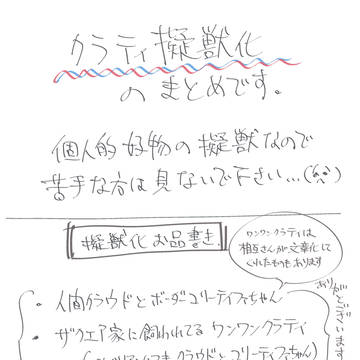 クラティ擬獣化
のまとめです。
個人的好物の擬獣なので
苦手な方は見ないで下さい…
擬獣化お品書き
ワンワンクラティは
相互さんが文章化して
くれたものもあります
ありがとうございます
・人間クラウドとボーダーコリーティファちゃん
・ザクエア家に飼われてる ワンワンクラティ
クラウドとゴリーティファ)